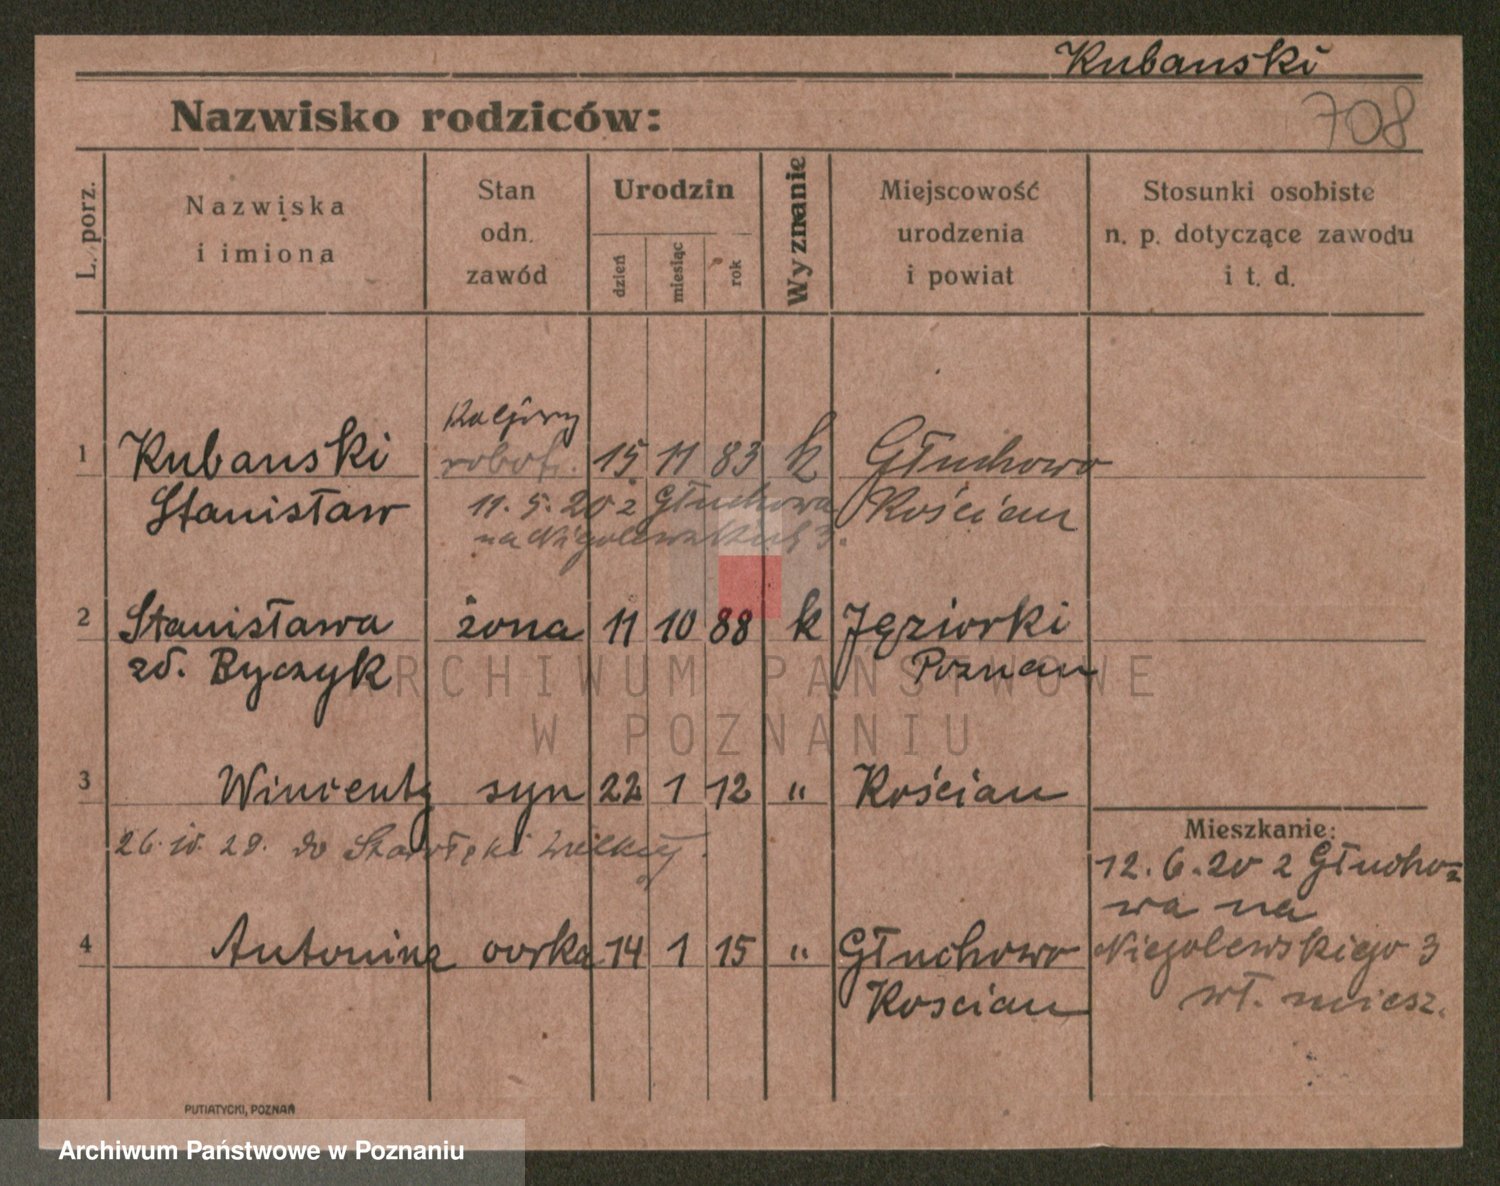 Kubanski
Nazwisko rodziców:
708
L. porz.
Nazwiska
i imiona
Stan
odn.
zawód
Urodzin
dzień
miesiąc
rok
Wyznanie
Miejscowość
urodzenia
i powiat
Stosunki osobiste
n. p. dotyczące zawodu
i t. d.
1 Kubanski robot. 15 11 83 k Głuchowo
Stanisław 11.5.20 z Głuchowa Kościan
na Niegolewskich 3.
2 Stanisława żona 11 10 88 k Jęziorki
zd. Byczyk Poznan
3 Wincenty syn 22 1 12 " Kościan
26. 10. 29. do Starołęki Wielkiej.
4 Antonina corka 14 1 15 " Głuchowo
Koscian
Mieszkanie:
12.6.20 z Głucho-
wa na
Niegolewskiego 3
wł. miesz.
PUTIATYCKI, POZNAŃ
ARCHIWUM PAŃSTWOWE
W POZNANIU
Archiwum Państwowe w Poznaniu